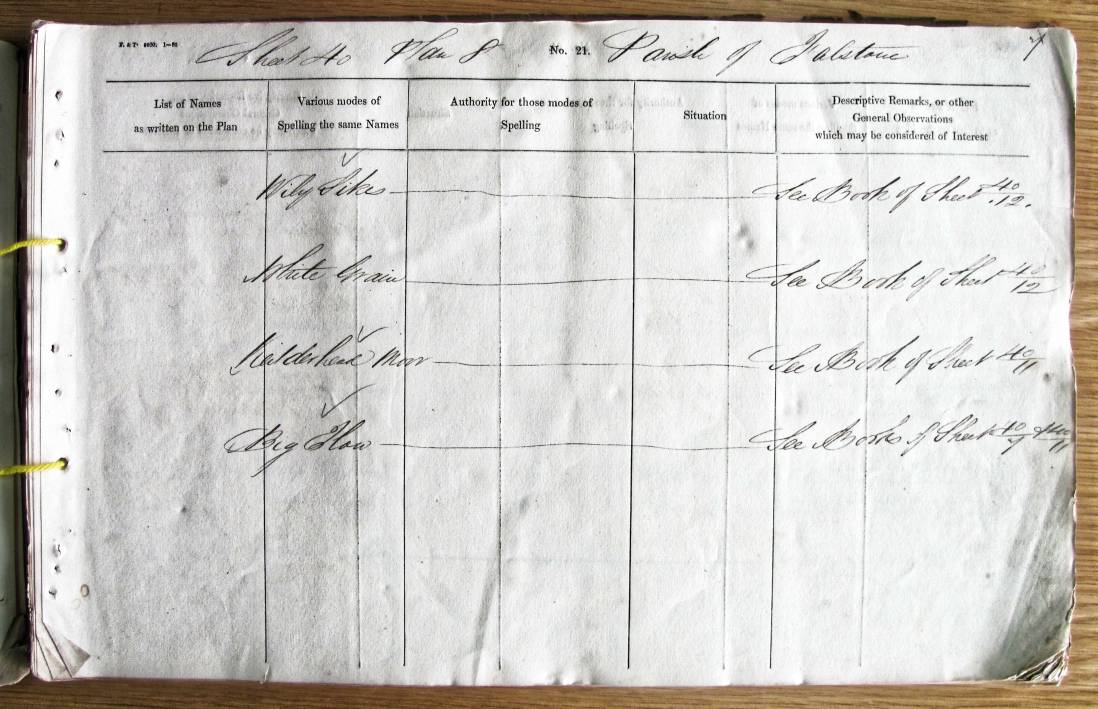 Sheet 40 Plan 8 No. 21. Parish of Falstone
List of Names as written on the Plan
Various modes of Spelling the same Names
Authority for those modes of Spelling
Situation
Descriptive Remarks, or other General Observations which may be considered of Interest
Wily Sikes See Book of Sheet 40/12.
White Grain See Book of Sheet 40/12
Keilderhead Moor See Book of Sheet 40/11
Big Flow See Books of Sheets 40/7 & 40/11